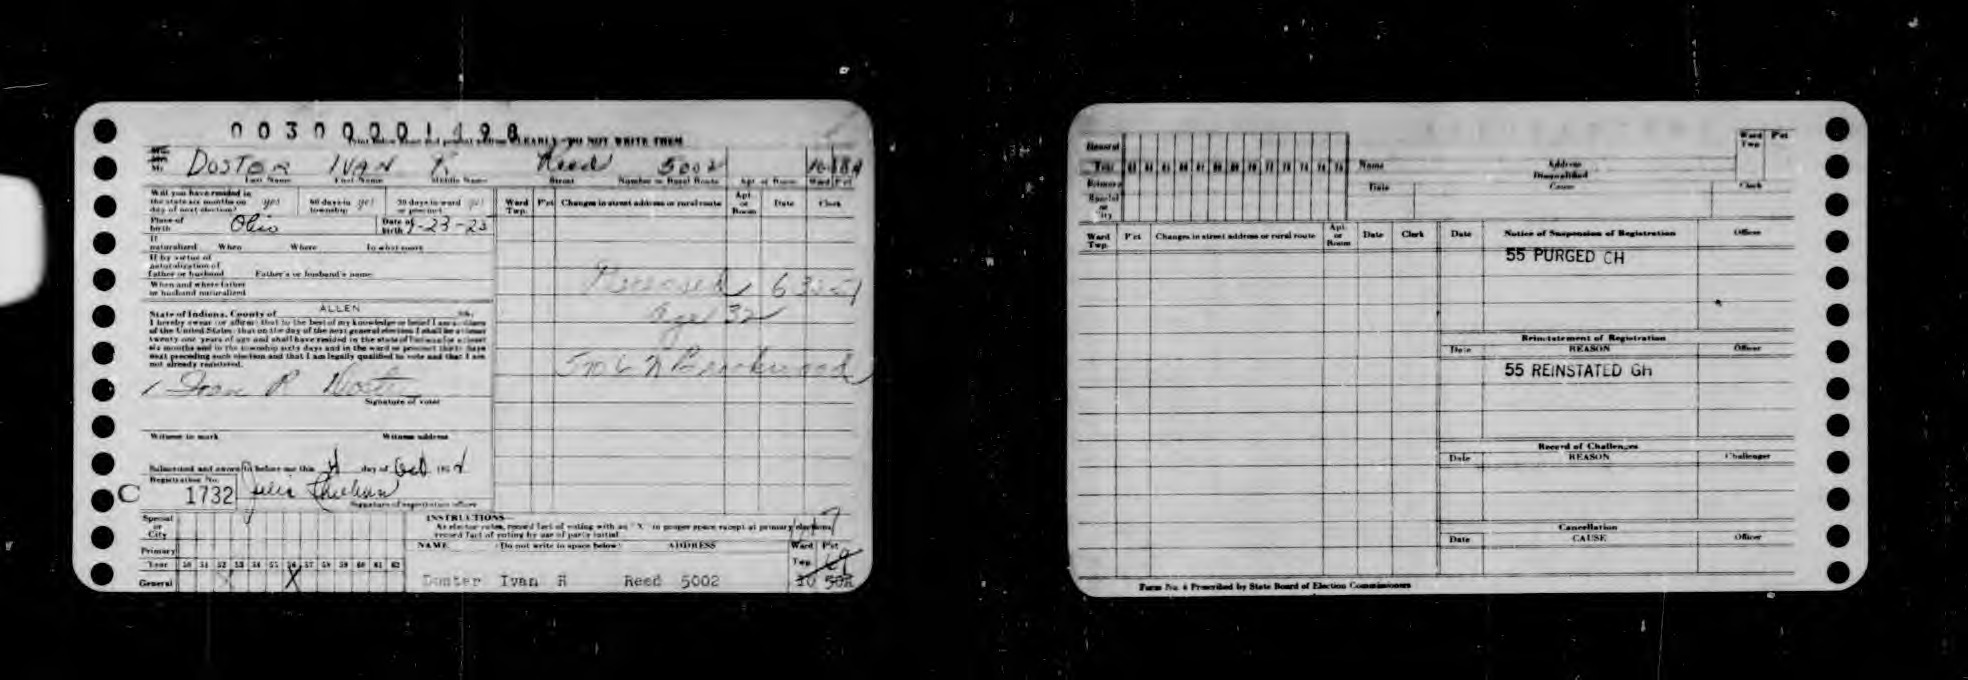 00300001498
CLEARLY—DO NOT WRITE THEM
Mr. DOSTER IVAN R. Reed 5002 10
Last Name First Name Middle Name Street Number or Rural Route Apt. or Room Ward Pct
Will you have resided in
the state six months on yes 60 days in yes 30 days in ward yes
day of next election? township or precinct
Ward Twp. P'ct Changes in street address or rural route Apt. or Room Date Clerk
Place of birth Ohio Date of birth -23-23
If naturalized When Where In what court
If by virtue of
naturalization of
father or husband Father's or husband's name
When and where father
or husband naturalized
Deceased
Age 32
5706 N Brookwood
State of Indiana, County of ALLEN ss.
I hereby swear (or affirm) that to the best of my knowledge or belief I am a citizen
of the United States; that on the day of the next general election I shall be at least
twenty-one years of age and shall have resided in the state of Indiana for at least
six months and in the township sixty days and in the ward or precinct thirty days
next preceding such election and that I am legally qualified to vote and that I am
not already registered.
Ivan R Doster
Signature of voter
Witness to mark Witness address
Subscribed and sworn to before me this day of Oct 195
Registration No.
C 1732
Signature of registration officer
Special or City
Primary
Year 50 51 52 53 54 55 56 57 58 59 60 61 62
General X
INSTRUCTIONS
As elector votes, record fact of voting with an "X" in proper space except at primary elections
record fact of voting by use of party initial
NAME (Do not write in space below) ADDRESS Ward Twp. P'ct
69
Doster Ivan R Reed 5002 10 502
General
Year 63 64 65 66 67 68 69 70 71 72 73 74 75
Primary
Special or City
Name Address Ward Twp. P'ct
Disqualified
Date Cause Clerk
Ward Twp. P'ct Changes in street address or rural route Apt. or Room Date Clerk
Date Notice of Suspension of Registration Officer
55 PURGED CH
Reinstatement of Registration
Date REASON Officer
55 REINSTATED GH
Record of Challenges
Date REASON Challenger
Cancellation
Date CAUSE Officer
Form No. 6 Prescribed by State Board of Election Commissioners